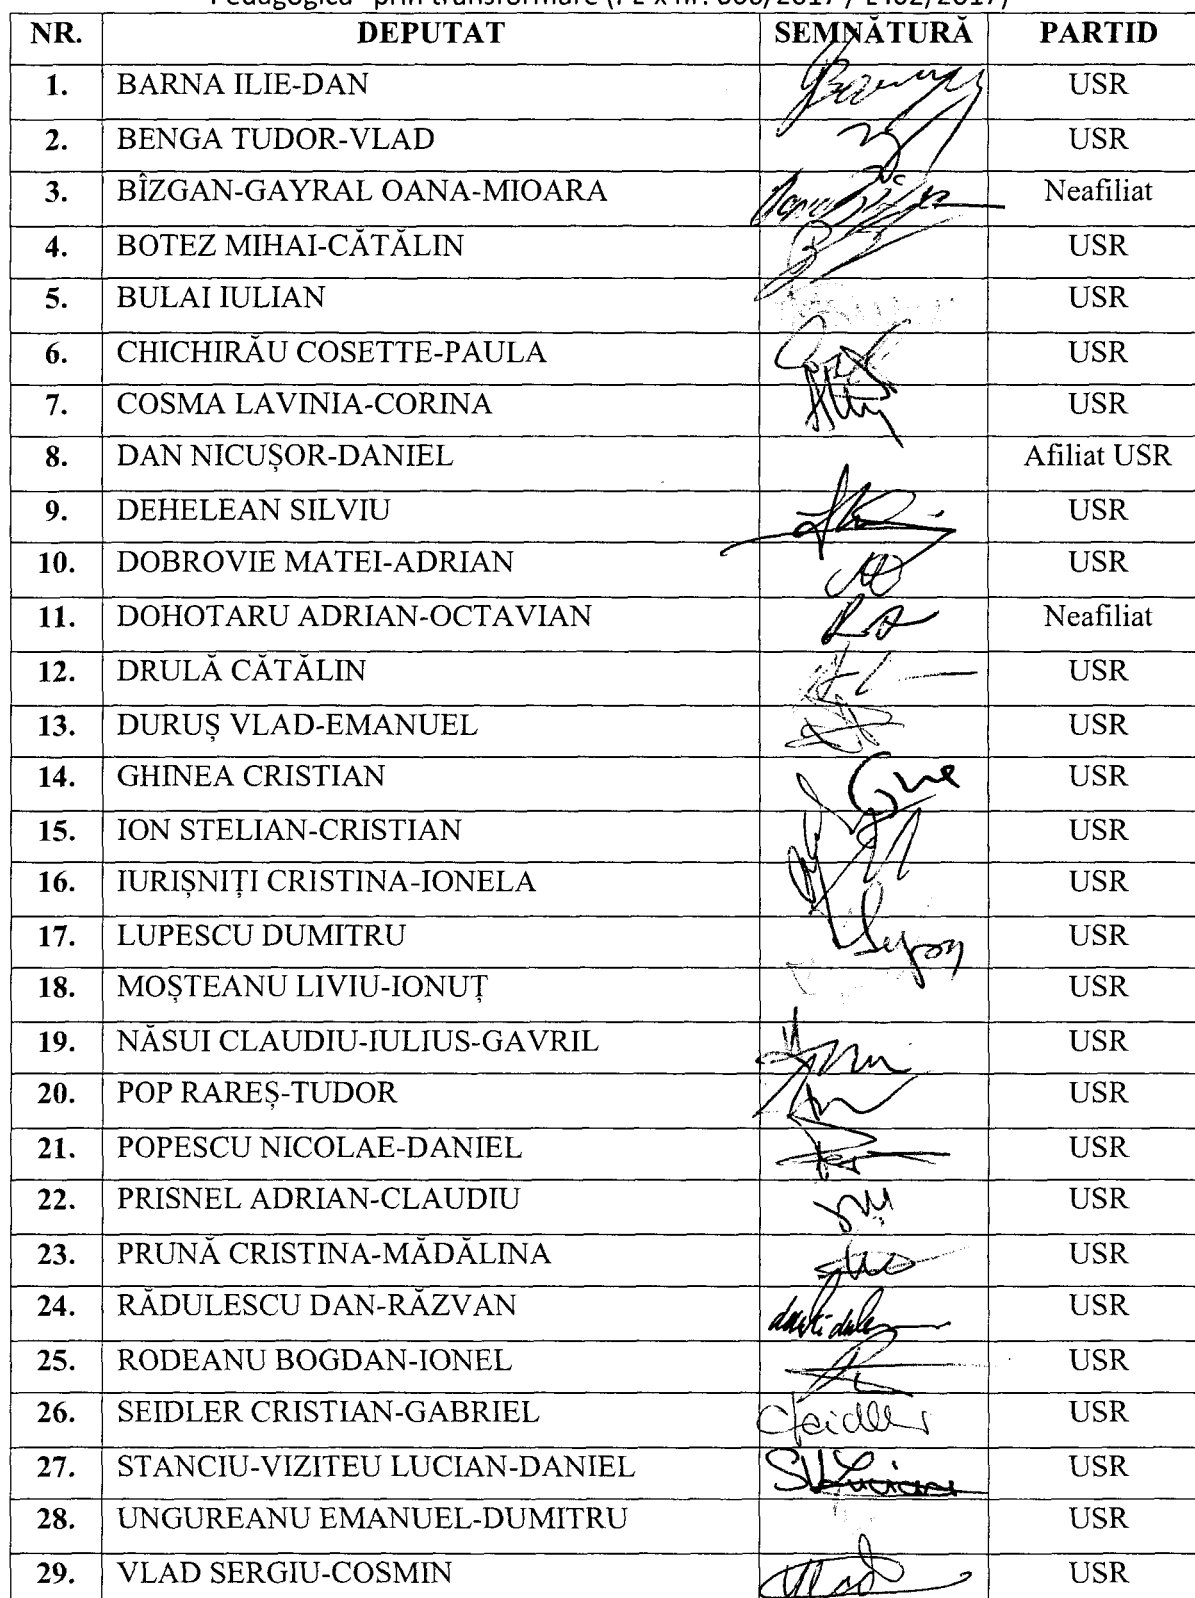 NR. DEPUTAT SEMNĂTURĂ PARTID
1. BARNA ILIE-DAN USR
2. BENGA TUDOR-VLAD USR
3. BÎZGAN-GAYRAL OANA-MIOARA Neafiliat
4. BOTEZ MIHAI-CĂTĂLIN USR
5. BULAI IULIAN USR
6. CHICHIRĂU COSETTE-PAULA USR
7. COSMA LAVINIA-CORINA USR
8. DAN NICUȘOR-DANIEL Afiliat USR
9. DEHELEAN SILVIU USR
10. DOBROVIE MATEI-ADRIAN USR
11. DOHOTARU ADRIAN-OCTAVIAN Neafiliat
12. DRULĂ CĂTĂLIN USR
13. DURUȘ VLAD-EMANUEL USR
14. GHINEA CRISTIAN USR
15. ION STELIAN-CRISTIAN USR
16. IURIȘNIȚI CRISTINA-IONELA USR
17. LUPESCU DUMITRU USR
18. MOȘTEANU LIVIU-IONUȚ USR
19. NĂSUI CLAUDIU-IULIUS-GAVRIL USR
20. POP RAREȘ-TUDOR USR
21. POPESCU NICOLAE-DANIEL USR
22. PRISNEL ADRIAN-CLAUDIU USR
23. PRUNĂ CRISTINA-MĂDĂLINA USR
24. RĂDULESCU DAN-RĂZVAN USR
25. RODEANU BOGDAN-IONEL USR
26. SEIDLER CRISTIAN-GABRIEL USR
27. STANCIU-VIZITEU LUCIAN-DANIEL USR
28. UNGUREANU EMANUEL-DUMITRU USR
29. VLAD SERGIU-COSMIN USR